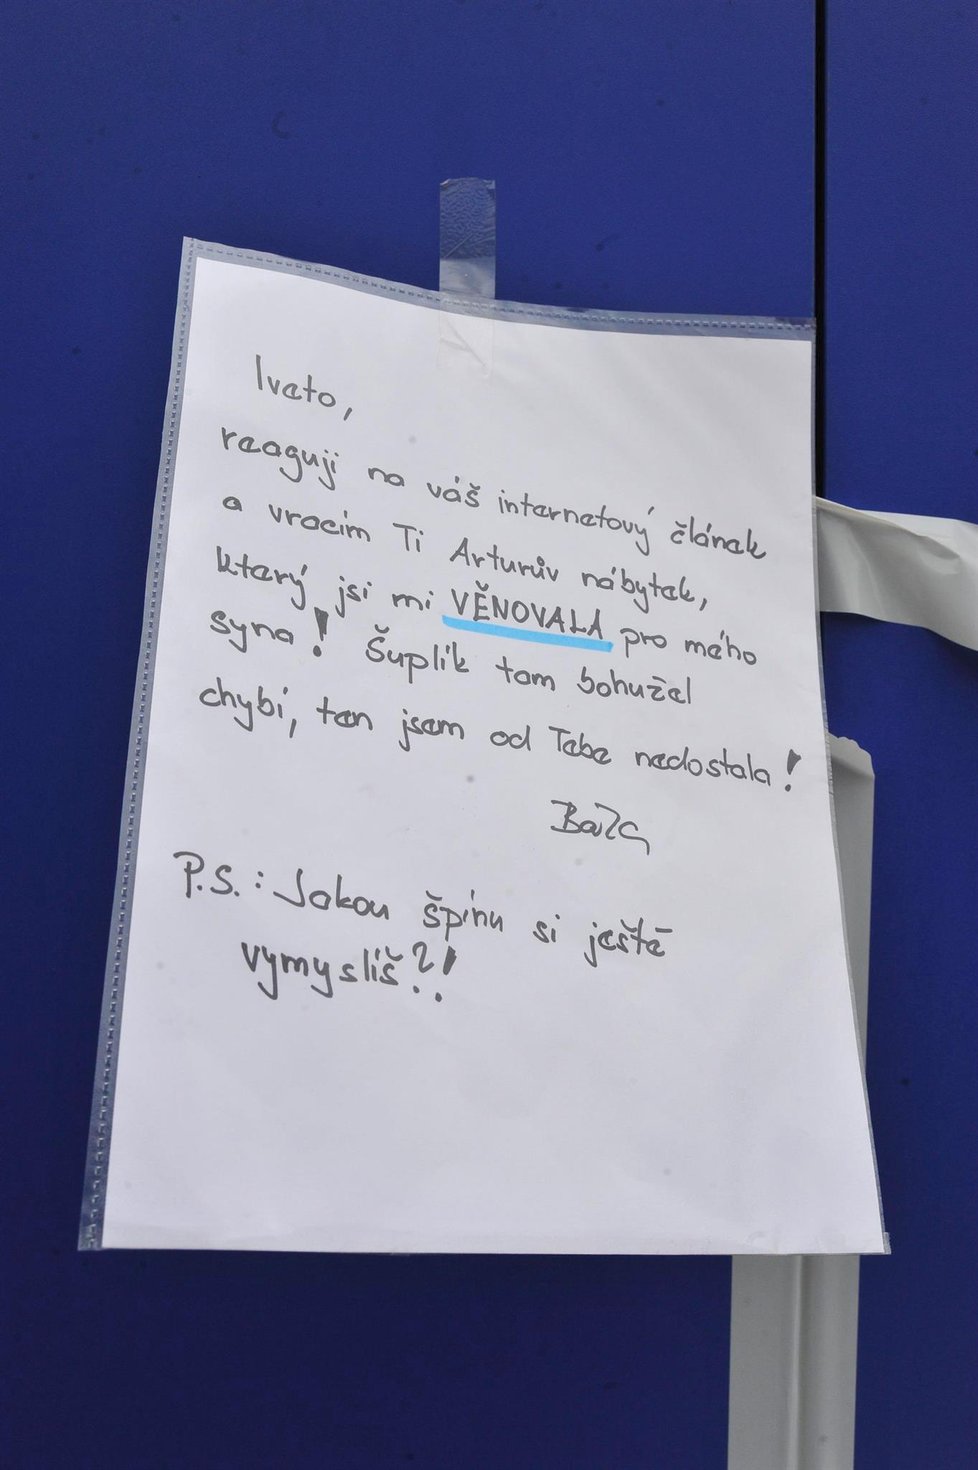 Iveto,
reaguji na váš internetový článek
a vracím Ti Arturův nábytek,
který jsi mi VĚNOVALA pro mého
syna! Šuplík tam bohužel
chybí, ten jsem od Tebe nedostala!
P.S.: Jakou špínu si ještě
vymyslíš?!